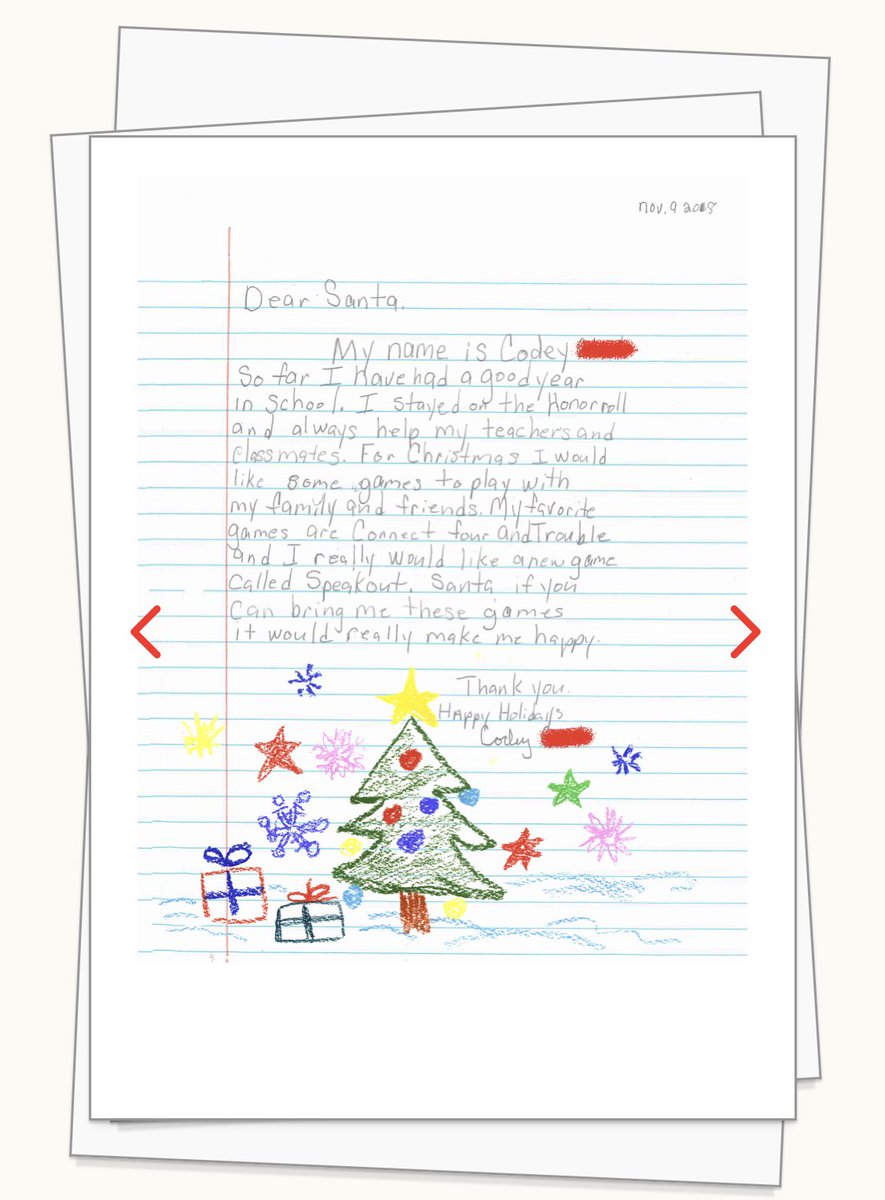 nov. 9 2018
Dear Santa,
My name is Codey
So far I have had a good year
in School. I stayed on the Honor roll
and always help my teachers and
classmates. For Christmas I would
like some games to play with
my family and friends. My favorite
games are Connect four and Trouble
and I really would like a new game
called Speakout. Santa if you
can bring me these games
it would really make me happy.
Thank you.
Happy Holidays
Codey